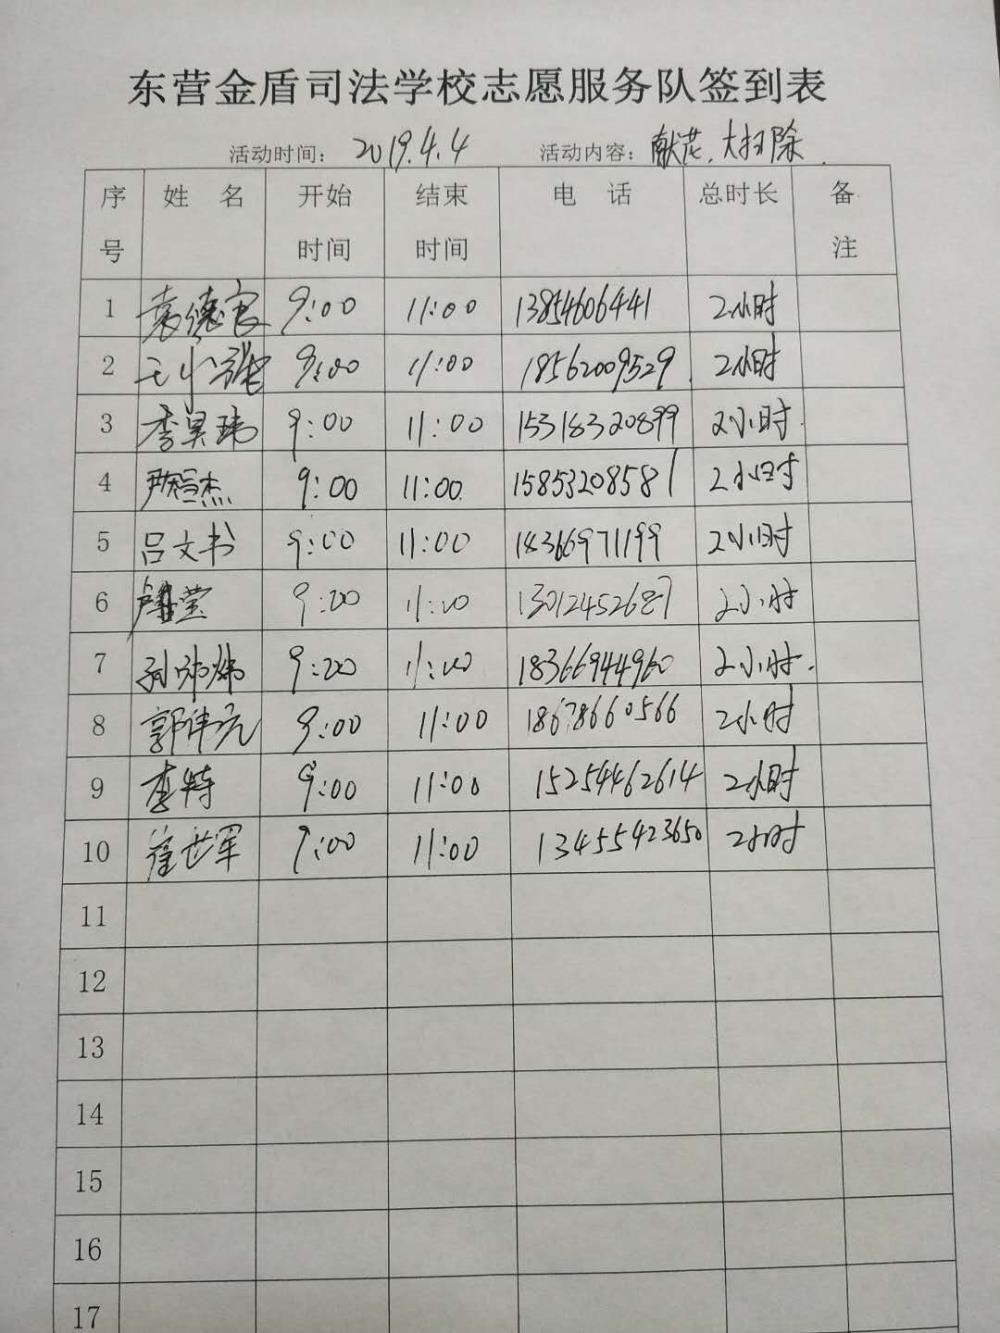 东营金盾司法学校志愿服务队签到表
活动时间: 2019.4.4 活动内容: 献花、大扫除
序号 姓 名 开始时间 结束时间 电 话 总时长 备注
1 袁德官 9:00 11:00 13854606441 2小时
2 王小 9:00 11:00 18562009529 2小时
3 李昊玮 9:00 11:00 15318320899 2小时
4 杰 9:00 11:00 15853208581 2小时
5 吕文书 9:00 11:00 18366971199 2小时
6 莹 9:00 11:00 13012452687 2小时
7 孙 9:00 11:00 18366944960 2小时
8 郭伟元 9:00 11:00 18678660566 2小时
9 李特 9:00 11:00 15254462614 2小时
10 崔世军 9:00 11:00 13455423650 2小时
11
12
13
14
15
16
17